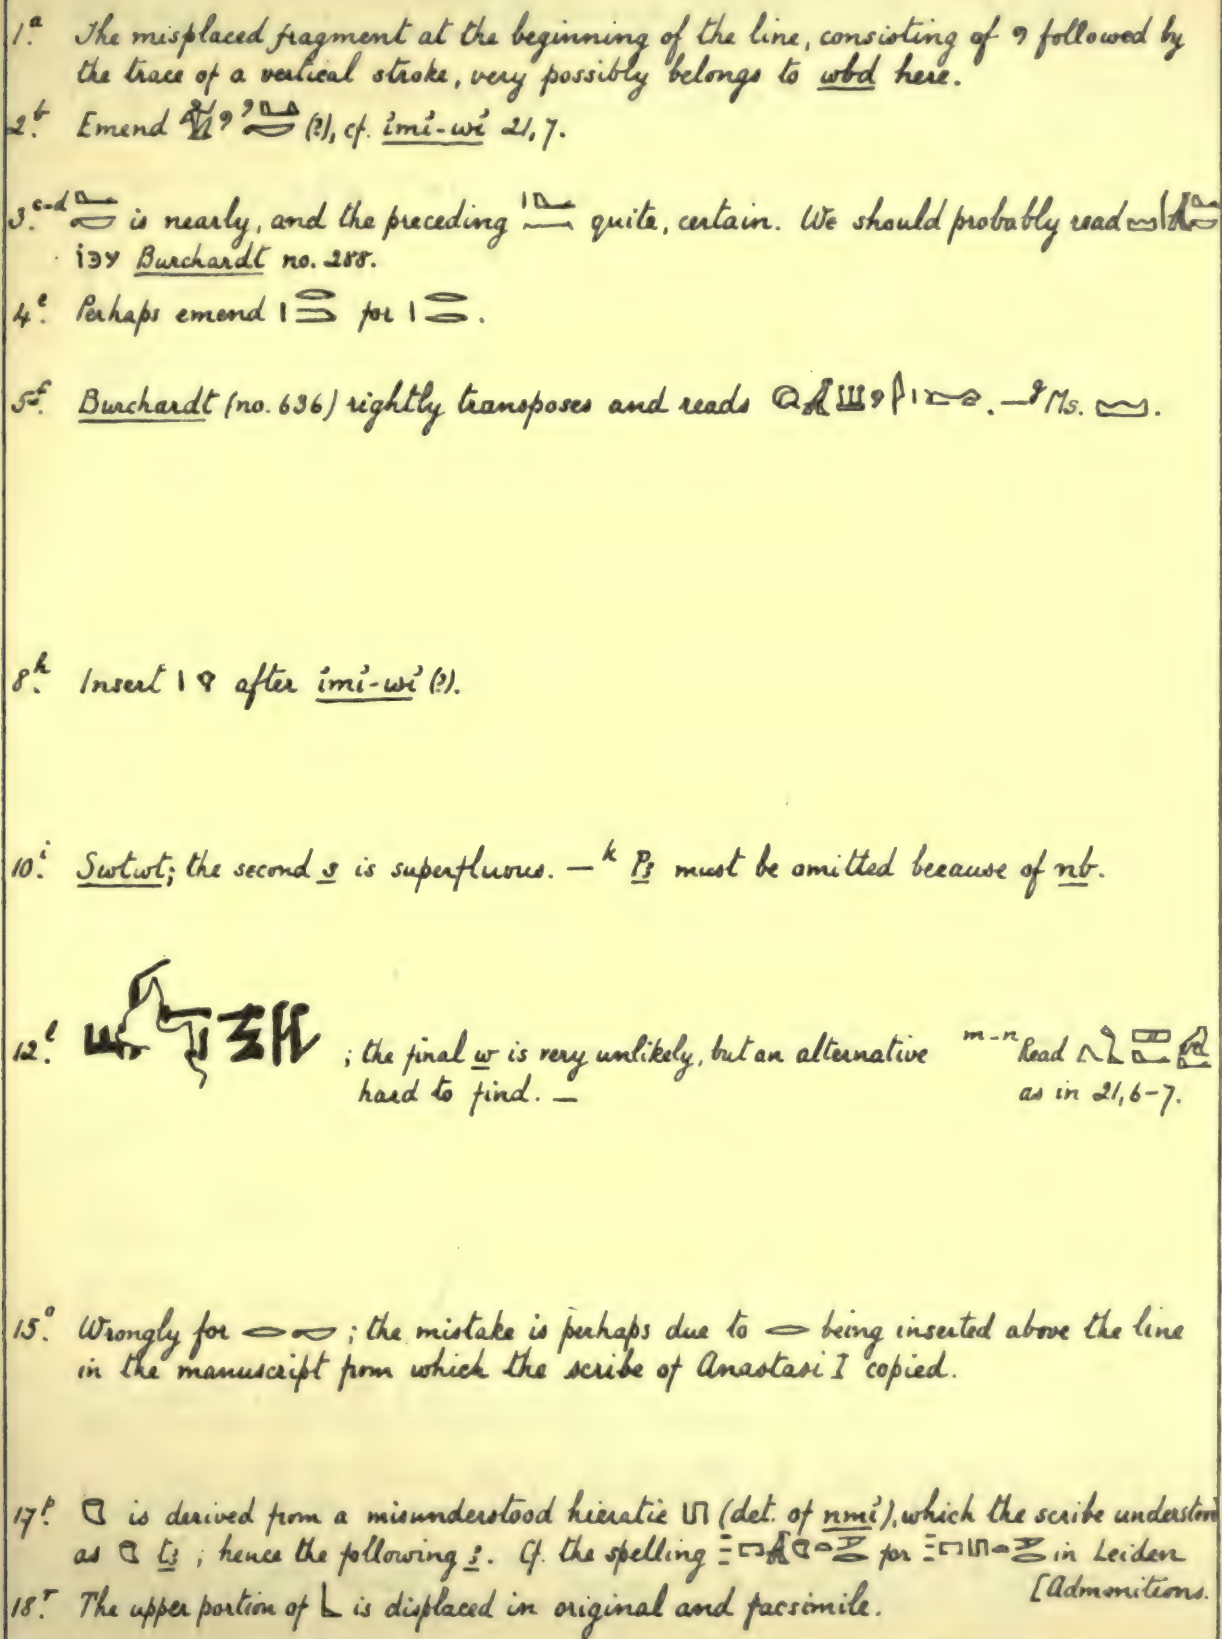 1.a The misplaced fragment at the beginning of the line, consisting of 𓏲 followed by
the trace of a vertical stroke, very possibly belongs to wbd here.
2.b Emend (?), cf. imi-wi 21, 7.
3.c-d is nearly, and the preceding quite, certain. We should probably read
Burchardt no. 288.
4.e Perhaps emend for
5.f Burchardt (no. 636) rightly transposes and reads . — g Ms. .
8.h Insert after imi-wi (?).
10.i Swtwt; the second s is superfluous. — k Pꜣ must be omitted because of nb.
12.l ; the final w is very unlikely, but an alternative m-n Read
hard to find. — as in 21, 6-7.
15.o Wrongly for ; the mistake is perhaps due to being inserted above the line
in the manuscript from which the scribe of Anastasi I copied.
17.p is derived from a misunderstood hieratic (det. of nmi), which the scribe understood
as tꜣ ; hence the following ꜣ. Cf. the spelling for in Leiden
[Admonitions.
18.r The upper portion of is displaced in original and facsimile.